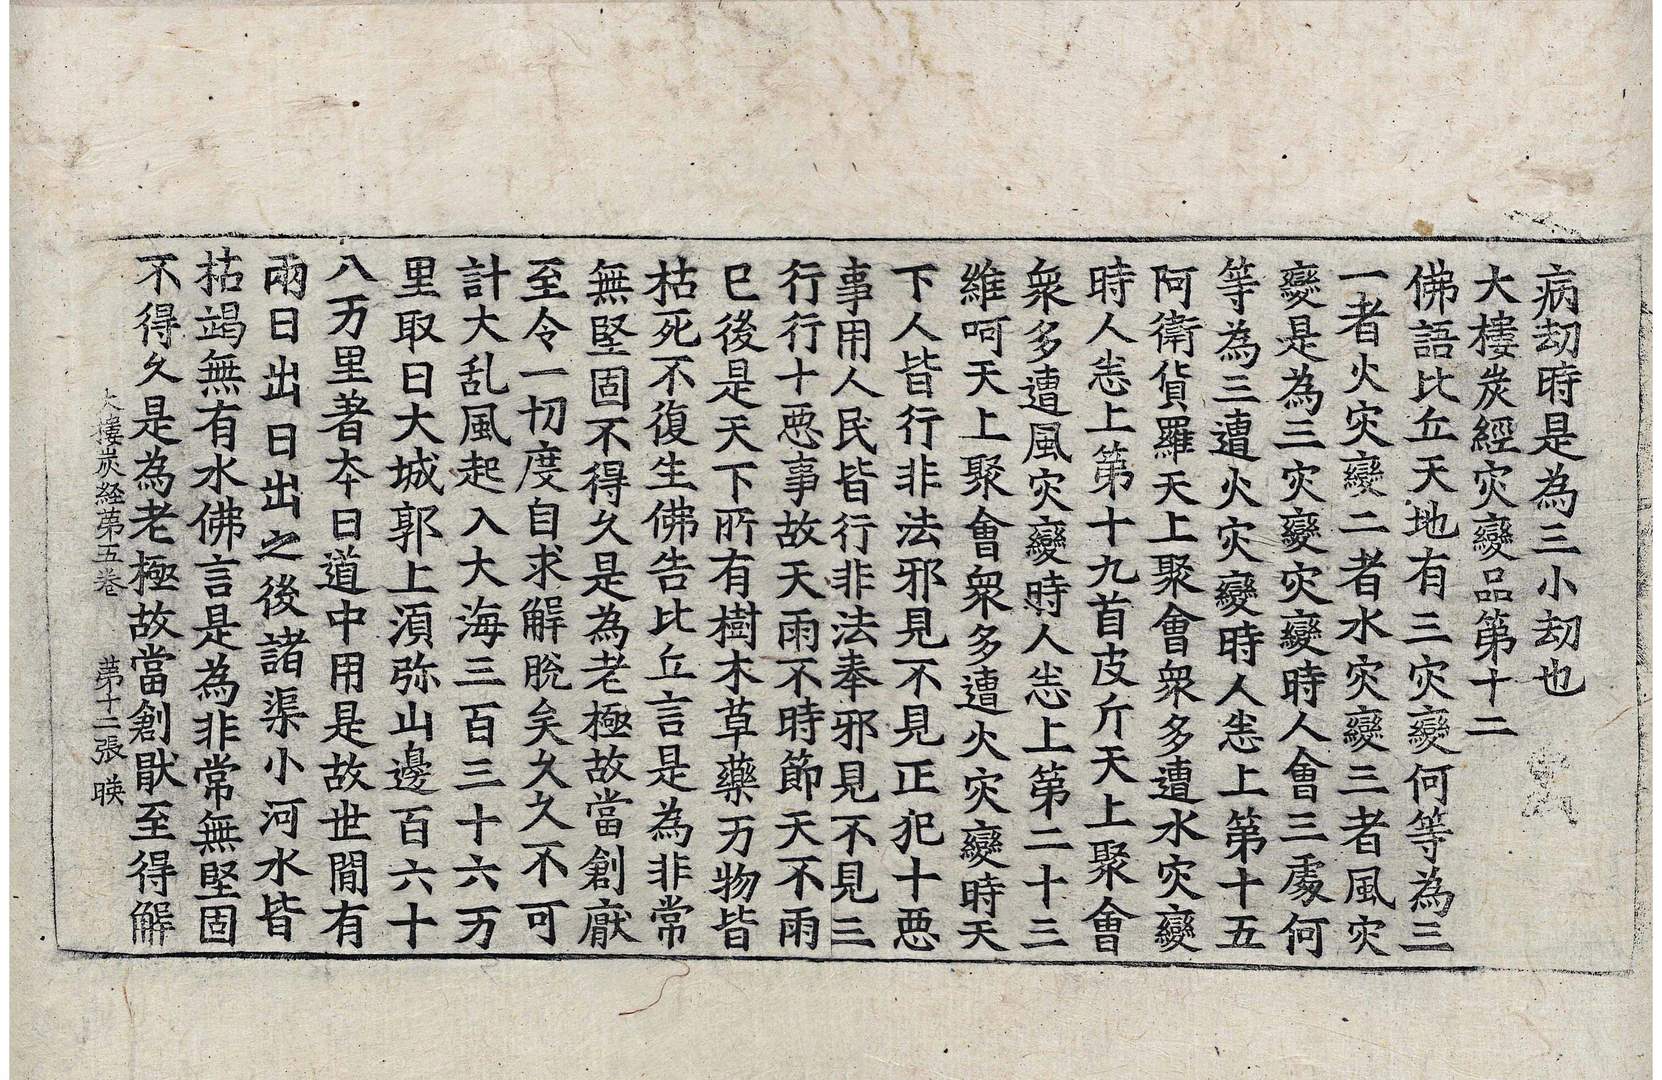 病劫時是為三小劫也
大樓炭經灾變品第十二
佛語比丘天地有三灾變何等為三
一者火灾變二者水灾變三者風灾
變是為三灾變灾變時人會三處何
等為三遭火灾變時人恚上第十五
阿衛貨羅天上聚會衆多遭水灾變
時人恚上第十九首皮斤天上聚會
衆多遭風灾變時人恚上第二十三
維呵天上聚會衆多遭火灾變時天
下人皆行非法邪見不見正犯十𢙣
事用人民皆行非法奉邪見不見三
行行十𢙣事故天雨不時節天不雨
已後是天下所有樹木草藥万物皆
枯死不復生佛告比丘言是為非常
無堅固不得久是為老極故當創厭
至令一切度自求解脫矣久久不可
計大乱風起入大海三百三十六万
里取日大城郭上湏弥山邊百六十
八万里著夲日道中用是故世閒有
兩日出日出之後諸渠小河水皆
枯竭無有水佛言是為非常無堅固
不得久是為老極故當創猒至得解
大樓炭経第五卷 第十二張 暎